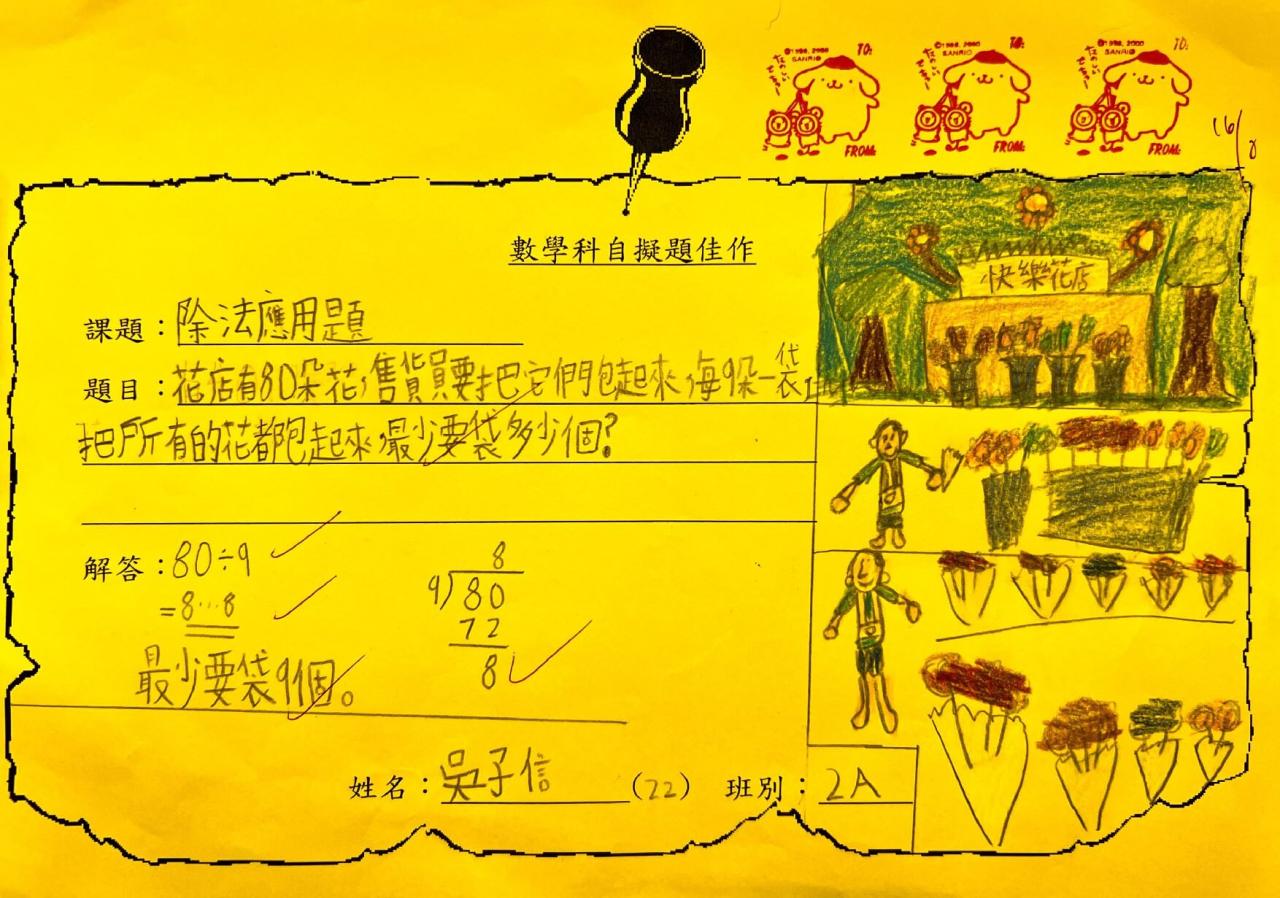 ©1996, 2000 SANRIO TO: FROM:
©1996, 2000 SANRIO TO: FROM:
©1996, 2000 SANRIO TO: FROM:
16/
數學科自擬題佳作
快樂花店
課題：除法應用題
題目：花店有80朵花，售貨員要把它們包起來，每9朵一袋，
把所有的花都包起來，最少要袋多少個？
解答：80÷9
=8…8
最少要袋9個。
8
9)80
72
8
姓名：吳子信 (22) 班別：2A